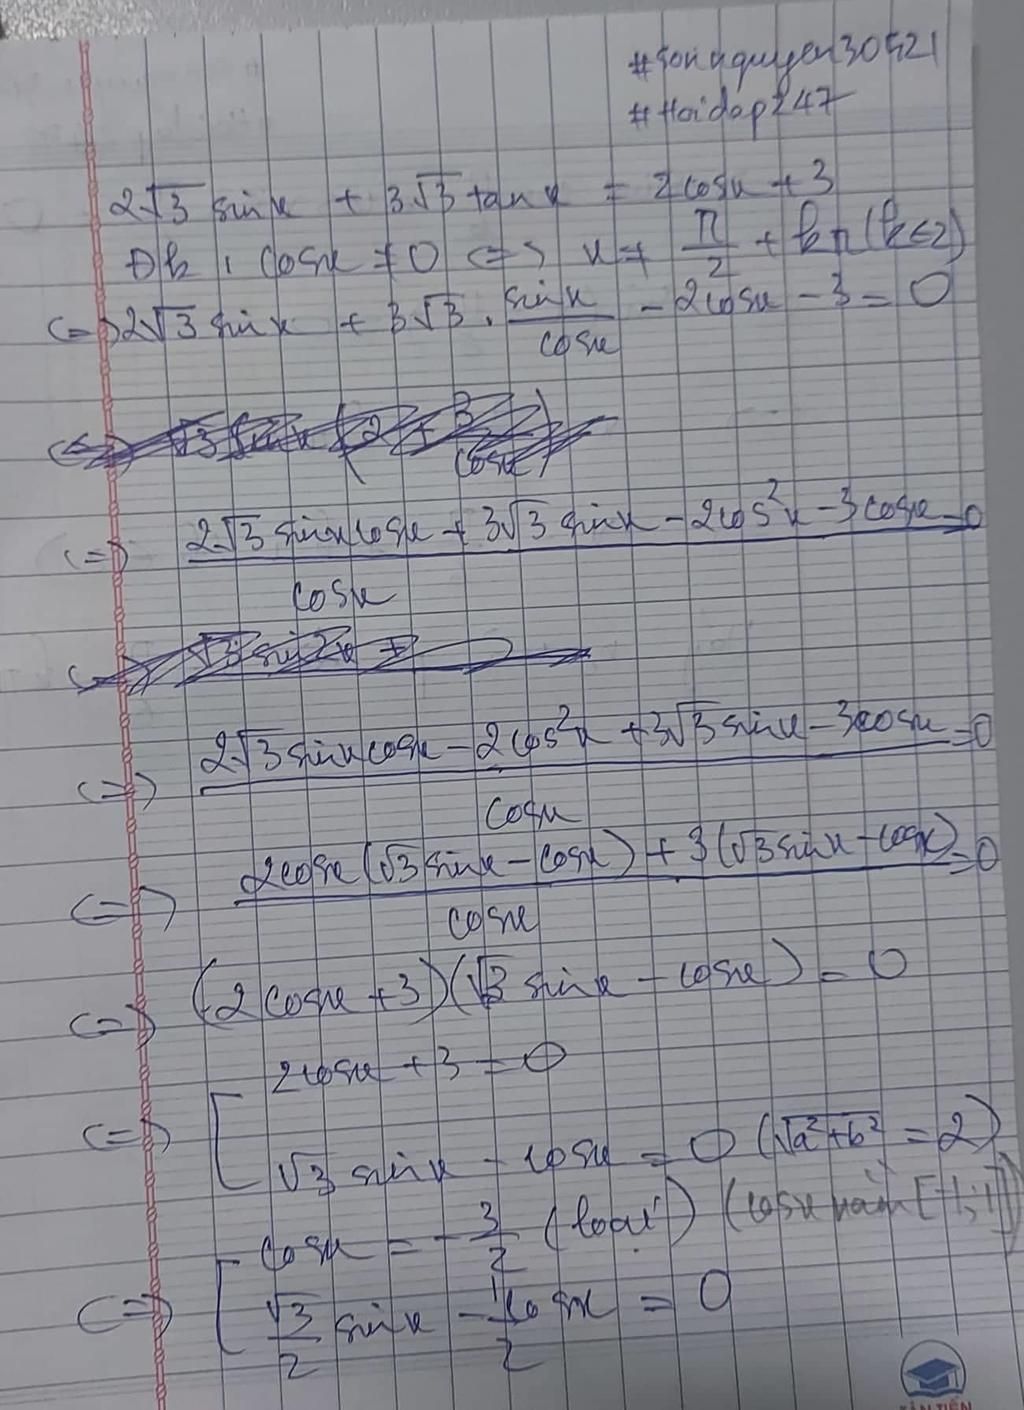 #sonnguyen30521
#Hoidap247
2√3 sinx + 3√3 tanx = 2cosx + 3
Đk: cosx ≠ 0 <=> x ≠ π/2 + kπ (k∈Z)
<=> 2√3 sinx + 3√3 . sinx/cosx - 2cosx - 3 = 0
<=> (2√3 sinxcosx + 3√3 sinx - 2cos²x - 3cosx)/cosx = 0
<=> (2√3 sinxcosx - 2cos²x + 3√3 sinx - 3cosx)/cosx = 0
<=> (2cosx(√3 sinx - cosx) + 3(√3 sinx - cosx))/cosx = 0
<=> (2cosx + 3)(√3 sinx - cosx) = 0
<=> [ 2cosx + 3 = 0
√3 sinx - cosx = 0 (√a²+b² = 2)
<=> [ cosx = -3/2 (loại) (cosx [-1;1])
√3/2 sinx - 1/2 cosx = 0
TÂN TIẾN